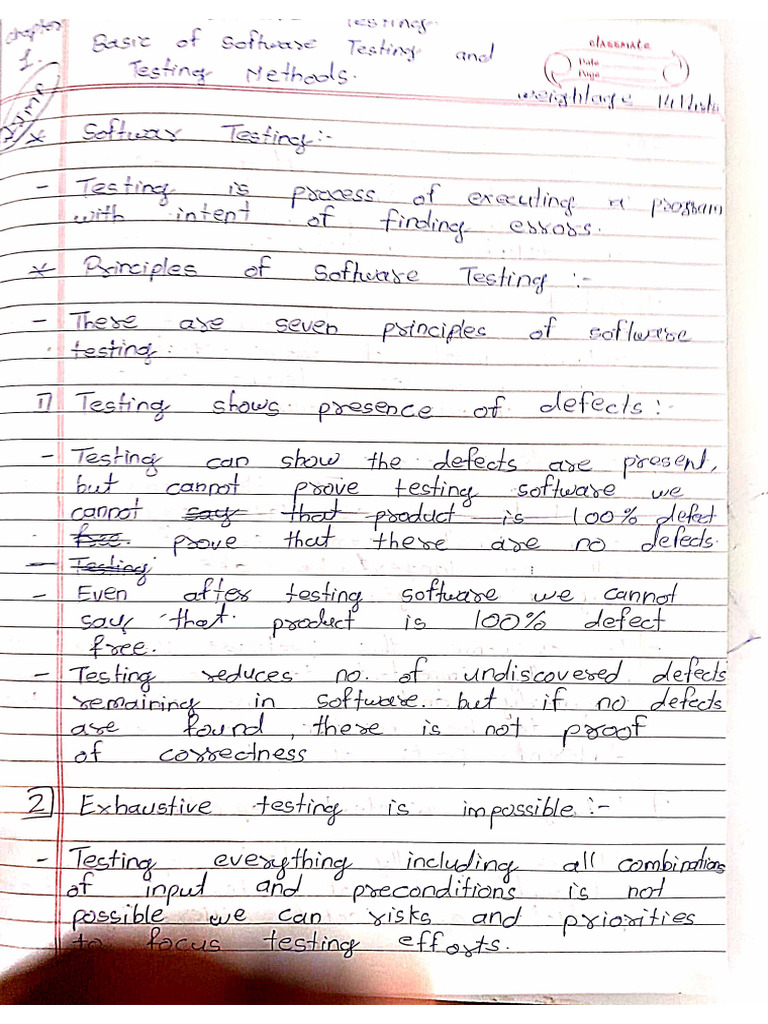 Testing.
chapter 1.
Basic of Software Testing and
Testing Methods.
classmate
Date
Page
weightage 14
* Softwar Testing:-
- Testing is process of executing a program
with intent of finding errors.
* Principles of Software Testing :-
- There are seven principles of software
testing.
1) Testing shows presence of defects:-
- Testing can show the defects are present,
but cannot prove testing software we
cannot say that product is 100% defect
free. prove that there are no defects.
- Testing
- Even after testing software we cannot
say that product is 100% defect
free.
- Testing reduces no. of undiscovered defects
remaining in software. but if no defects
are found, there is not proof
of correctness
2 Exhaustive testing is impossible:-
- Testing everything including all combinations
of input and preconditions is not
possible we can risks and priorities
to focus testing efforts.